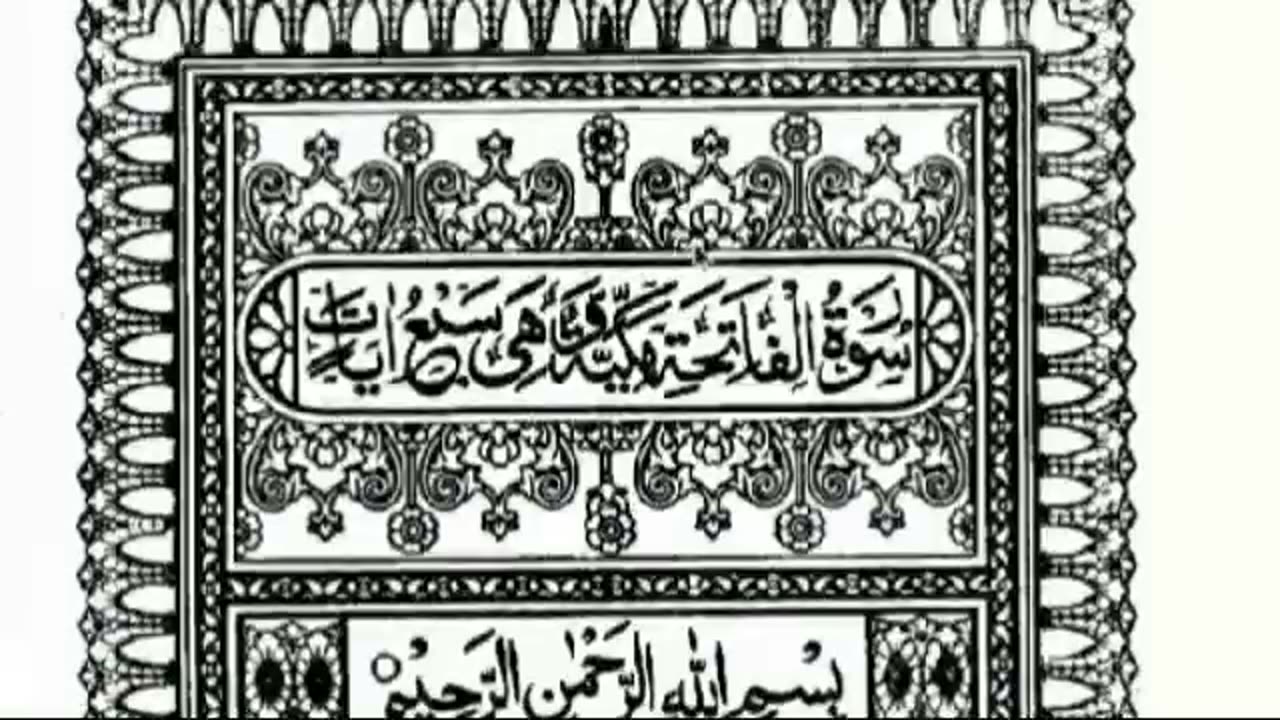 سُوْرَةُ الْفَاتِحَةِ مَكِّيَّةٌ وَّهِىَ سَبْعُ اٰيَاتٍ
بِسْمِ اللّٰهِ الرَّحْمٰنِ الرَّحِيْمِ